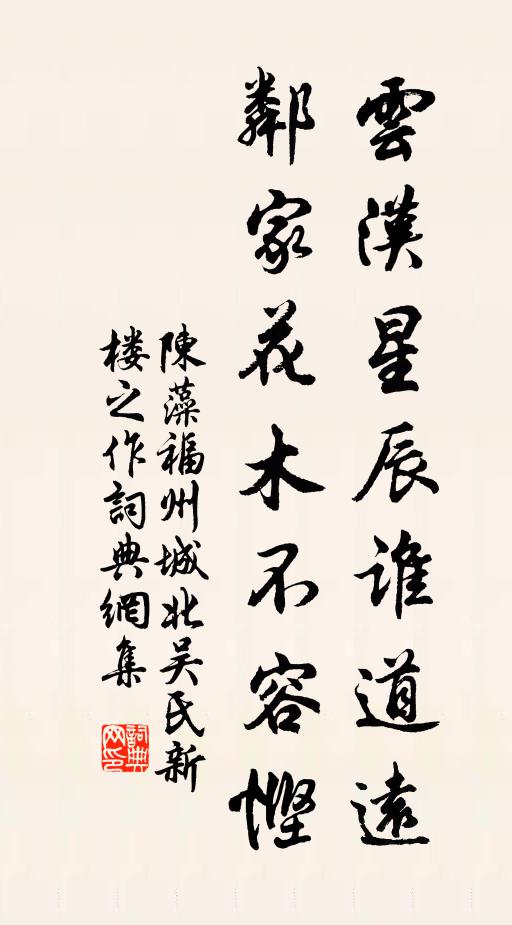 雲漢星辰誰道遠
鄰家花木不容慳
陳藻福州城北吴民新
楼之作詞典網集
詞典网印